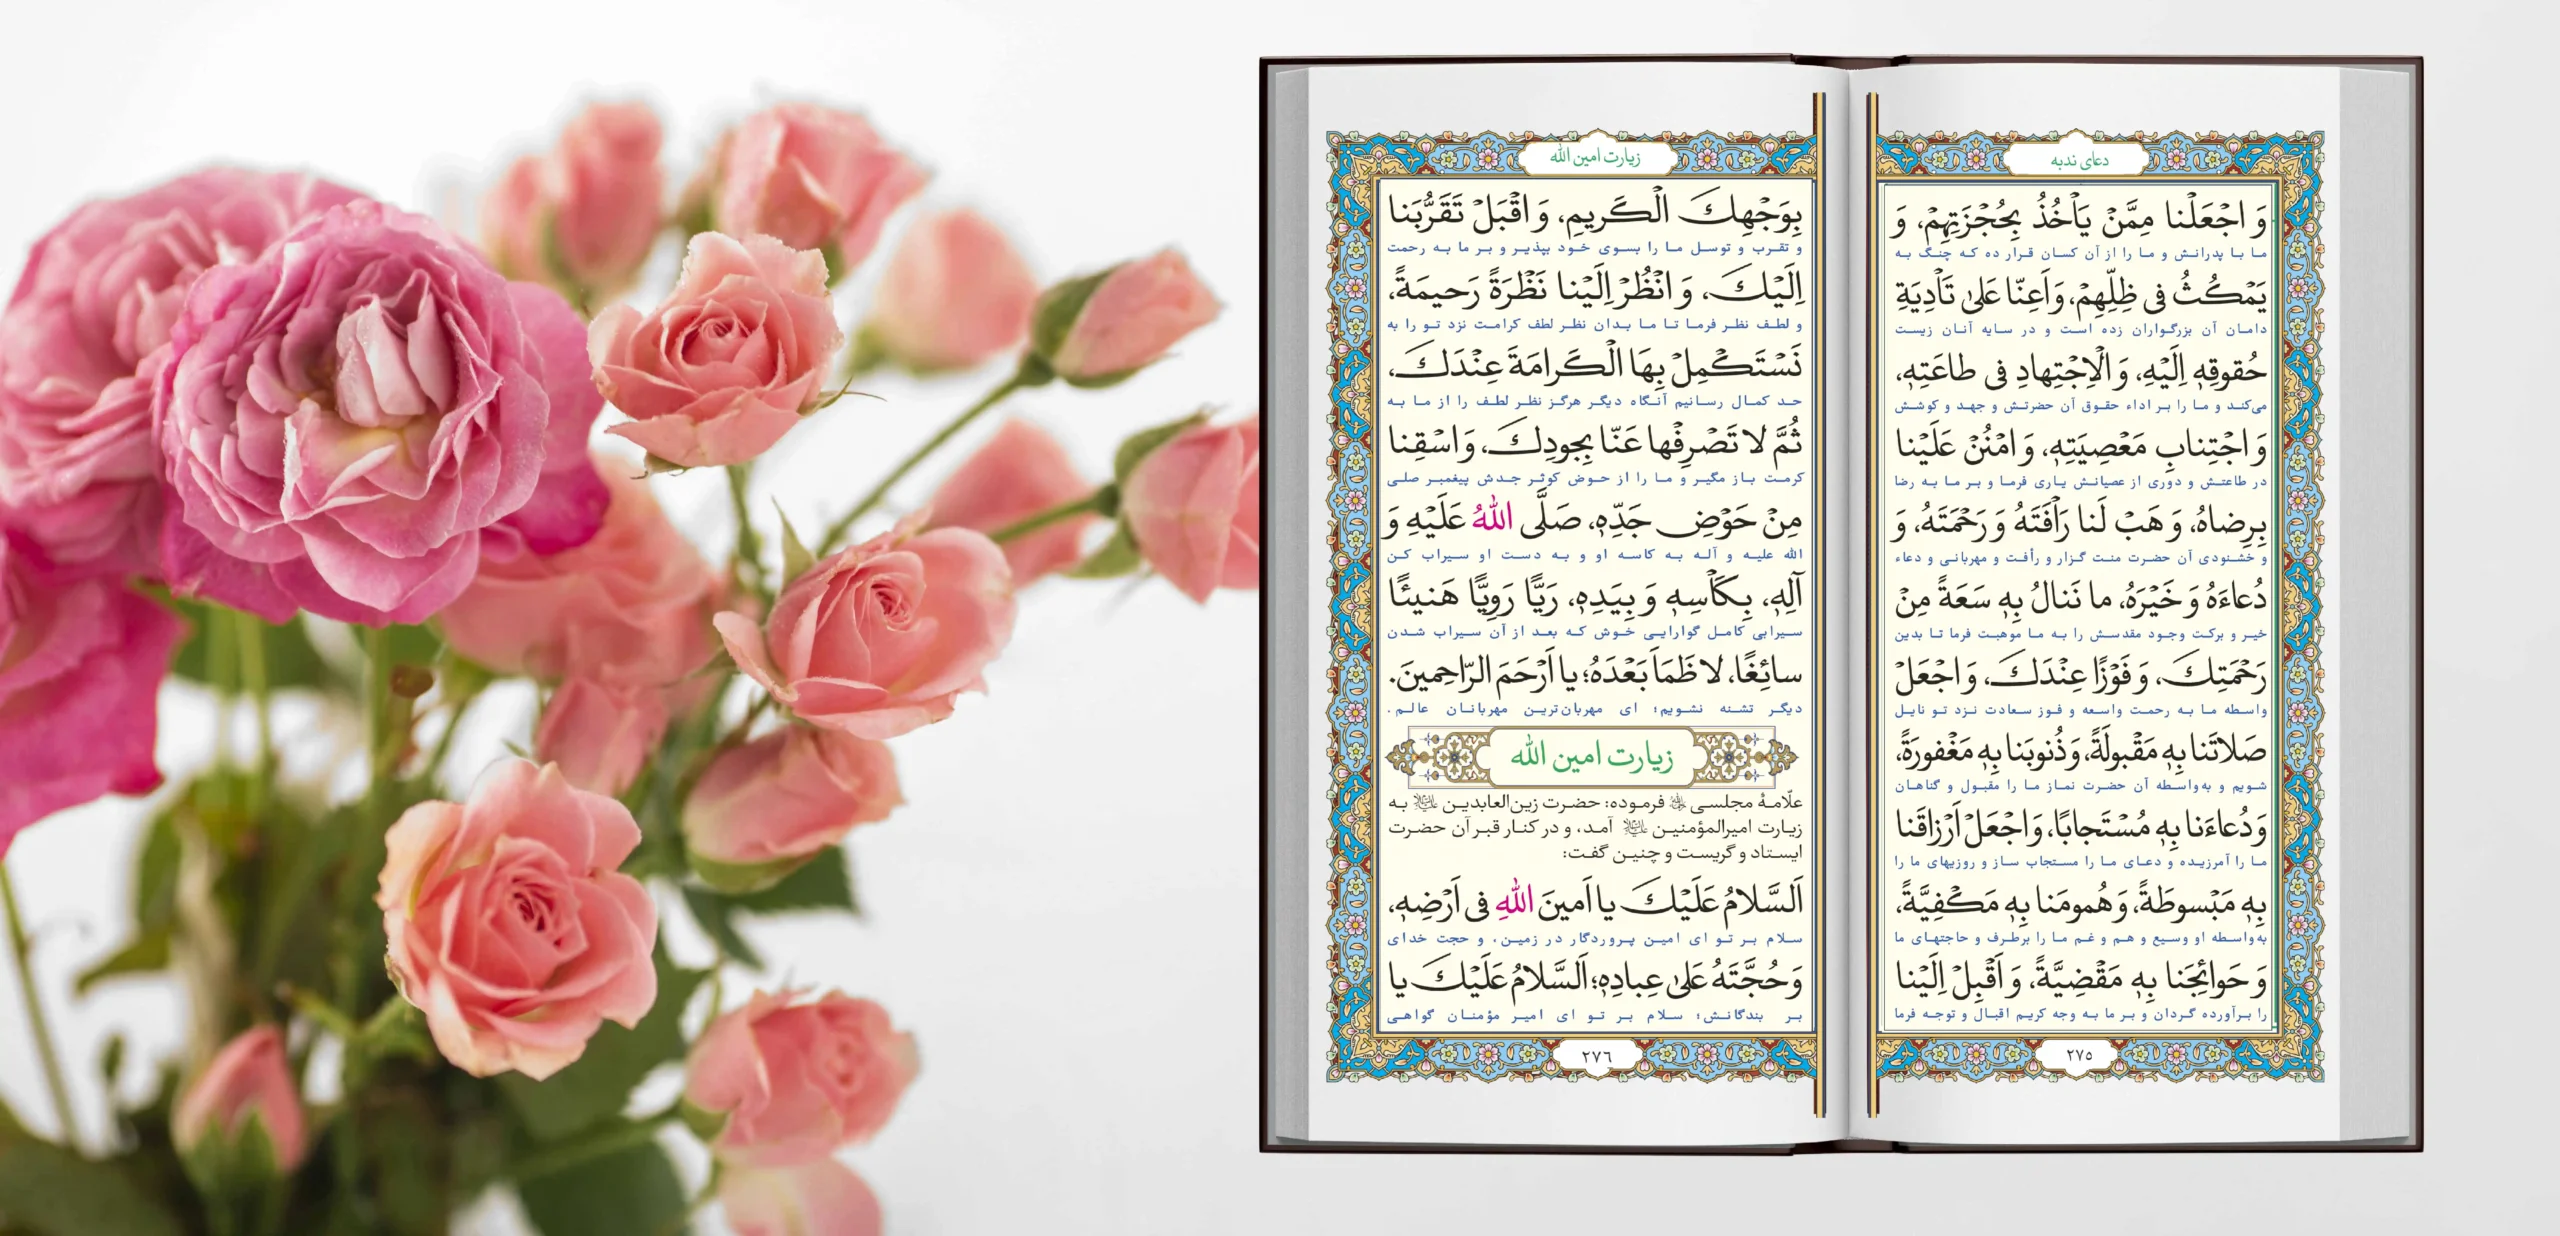 دعای ندبه
وَ اجْعَلْنا مِمَّنْ يَأْخُذُ بِحُجْزَتِهِمْ، وَ
ما با پدرانش و ما را از آن کسان قرار ده که چنگ به
يَمْكُثُ فى ظِلِّهِمْ، وَ اَعِنّا عَلىٰ تَأْدِيَةِ
دامان آن بزرگواران زده است و در سایه آنان زیست
حُقوقِهٖ اِلَيْهِ، وَ الْاِجْتِهادِ فى طاعَتِهٖ،
می‌کند و ما را بر اداء حقوق آن حضرتش و جهد و کوشش
وَ اجْتِنابِ مَعْصِيَتِهٖ، وَ امْنُنْ عَلَيْنا
در طاعتش و دوری از عصیانش یاری فرما و بر ما به رضا
بِرِضاهُ، وَ هَبْ لَنا رَأْفَتَهُ وَ رَحْمَتَهُ، وَ
و خشنودی آن حضرت منت گزار و رأفت و مهربانی و دعاء
دُعاءَهُ وَ خَيْرَهُ، ما نَنالُ بِهٖ سَعَةً مِنْ
خیر و برکت وجود مقدسش را به ما موهبت فرما تا بدین
رَحْمَتِكَ، وَ فَوْزًا عِنْدَكَ، وَ اجْعَلْ
واسطه ما به رحمت واسعه و فوز سعادت نزد تو نایل
صَلاتَنا بِهٖ مَقْبولَةً، وَ ذُنوبَنا بِهٖ مَغْفورَةً،
شویم و به‌واسطه آن حضرت نماز ما را مقبول و گناهان
وَ دُعاءَنا بِهٖ مُسْتَجابًا، وَ اجْعَلْ اَرْزاقَنا
ما را آمرزیده و دعای ما را مستجاب ساز و روزیهای ما را
بِهٖ مَبْسوطَةً، وَ هُمومَنا بِهٖ مَكْفِيَّةً،
به‌واسطه او وسیع و هم و غم ما را برطرف و حاجتهای ما
وَ حَوائِجَنا بِهٖ مَقْضِيَّةً، وَ اَقْبِلْ اِلَيْنا
را برآورده گردان و بر ما به وجه کریم اقبال و توجه فرما
٢٧٥
زیارت امین الله
بِوَجْهِكَ الْكَريمِ، وَ اقْبَلْ تَقَرُّبَنا
و تقرب و توسل ما را بسوی خود بپذیر و بر ما به رحمت
اِلَيْكَ، وَ انْظُرْ اِلَيْنا نَظْرَةً رَحيمَةً،
و لطف نظر فرما تا ما بدان نظر لطف کرامت نزد تو را به
نَسْتَكْمِلْ بِهَا الْكَرامَةَ عِنْدَكَ،
حد کمال رسانیم آنگاه دیگر هرگز نظر لطف را از ما به
ثُمَّ لا تَصْرِفْها عَنّا بِجودِكَ، وَ اسْقِنا
کرمت باز مگیر و ما را از حوض کوثر جدش پیغمبر صلی
مِنْ حَوْضِ جَدِّهٖ، صَلَّى اللهُ عَلَيْهِ وَ
الله علیه و آله به کاسه او و به دست او سیراب کن
آلِهٖ، بِكَأْسِهٖ وَ بِيَدِهٖ، رَيًّا رَوِيًّا هَنيئًا
سیرابی کامل گوارایی خوش که بعد از آن سیراب شدن
سائِغًا، لا ظَمَأَ بَعْدَهُ؛ يا اَرْحَمَ الرّاحِمينَ.
دیگر تشنه نشویم؛ ای مهربان‌ترین مهربانان عالم.
زیارت امین الله
علّامهٔ مجلسی فرموده: حضرت زین‌العابدین به
زیارت امیرالمؤمنین آمد، و در کنار قبر آن حضرت
ایستاد و گریست و چنین گفت:
اَلسَّلامُ عَلَيْكَ يا اَمينَ اللهِ فى اَرْضِهٖ،
سلام بر تو ای امین پروردگار در زمین، و حجت خدای
وَ حُجَّتَهُ عَلىٰ عِبادِهٖ؛ اَلسَّلامُ عَلَيْكَ يا
بر بندگانش؛ سلام بر تو ای امیر مؤمنان گواهی
٢٧٦